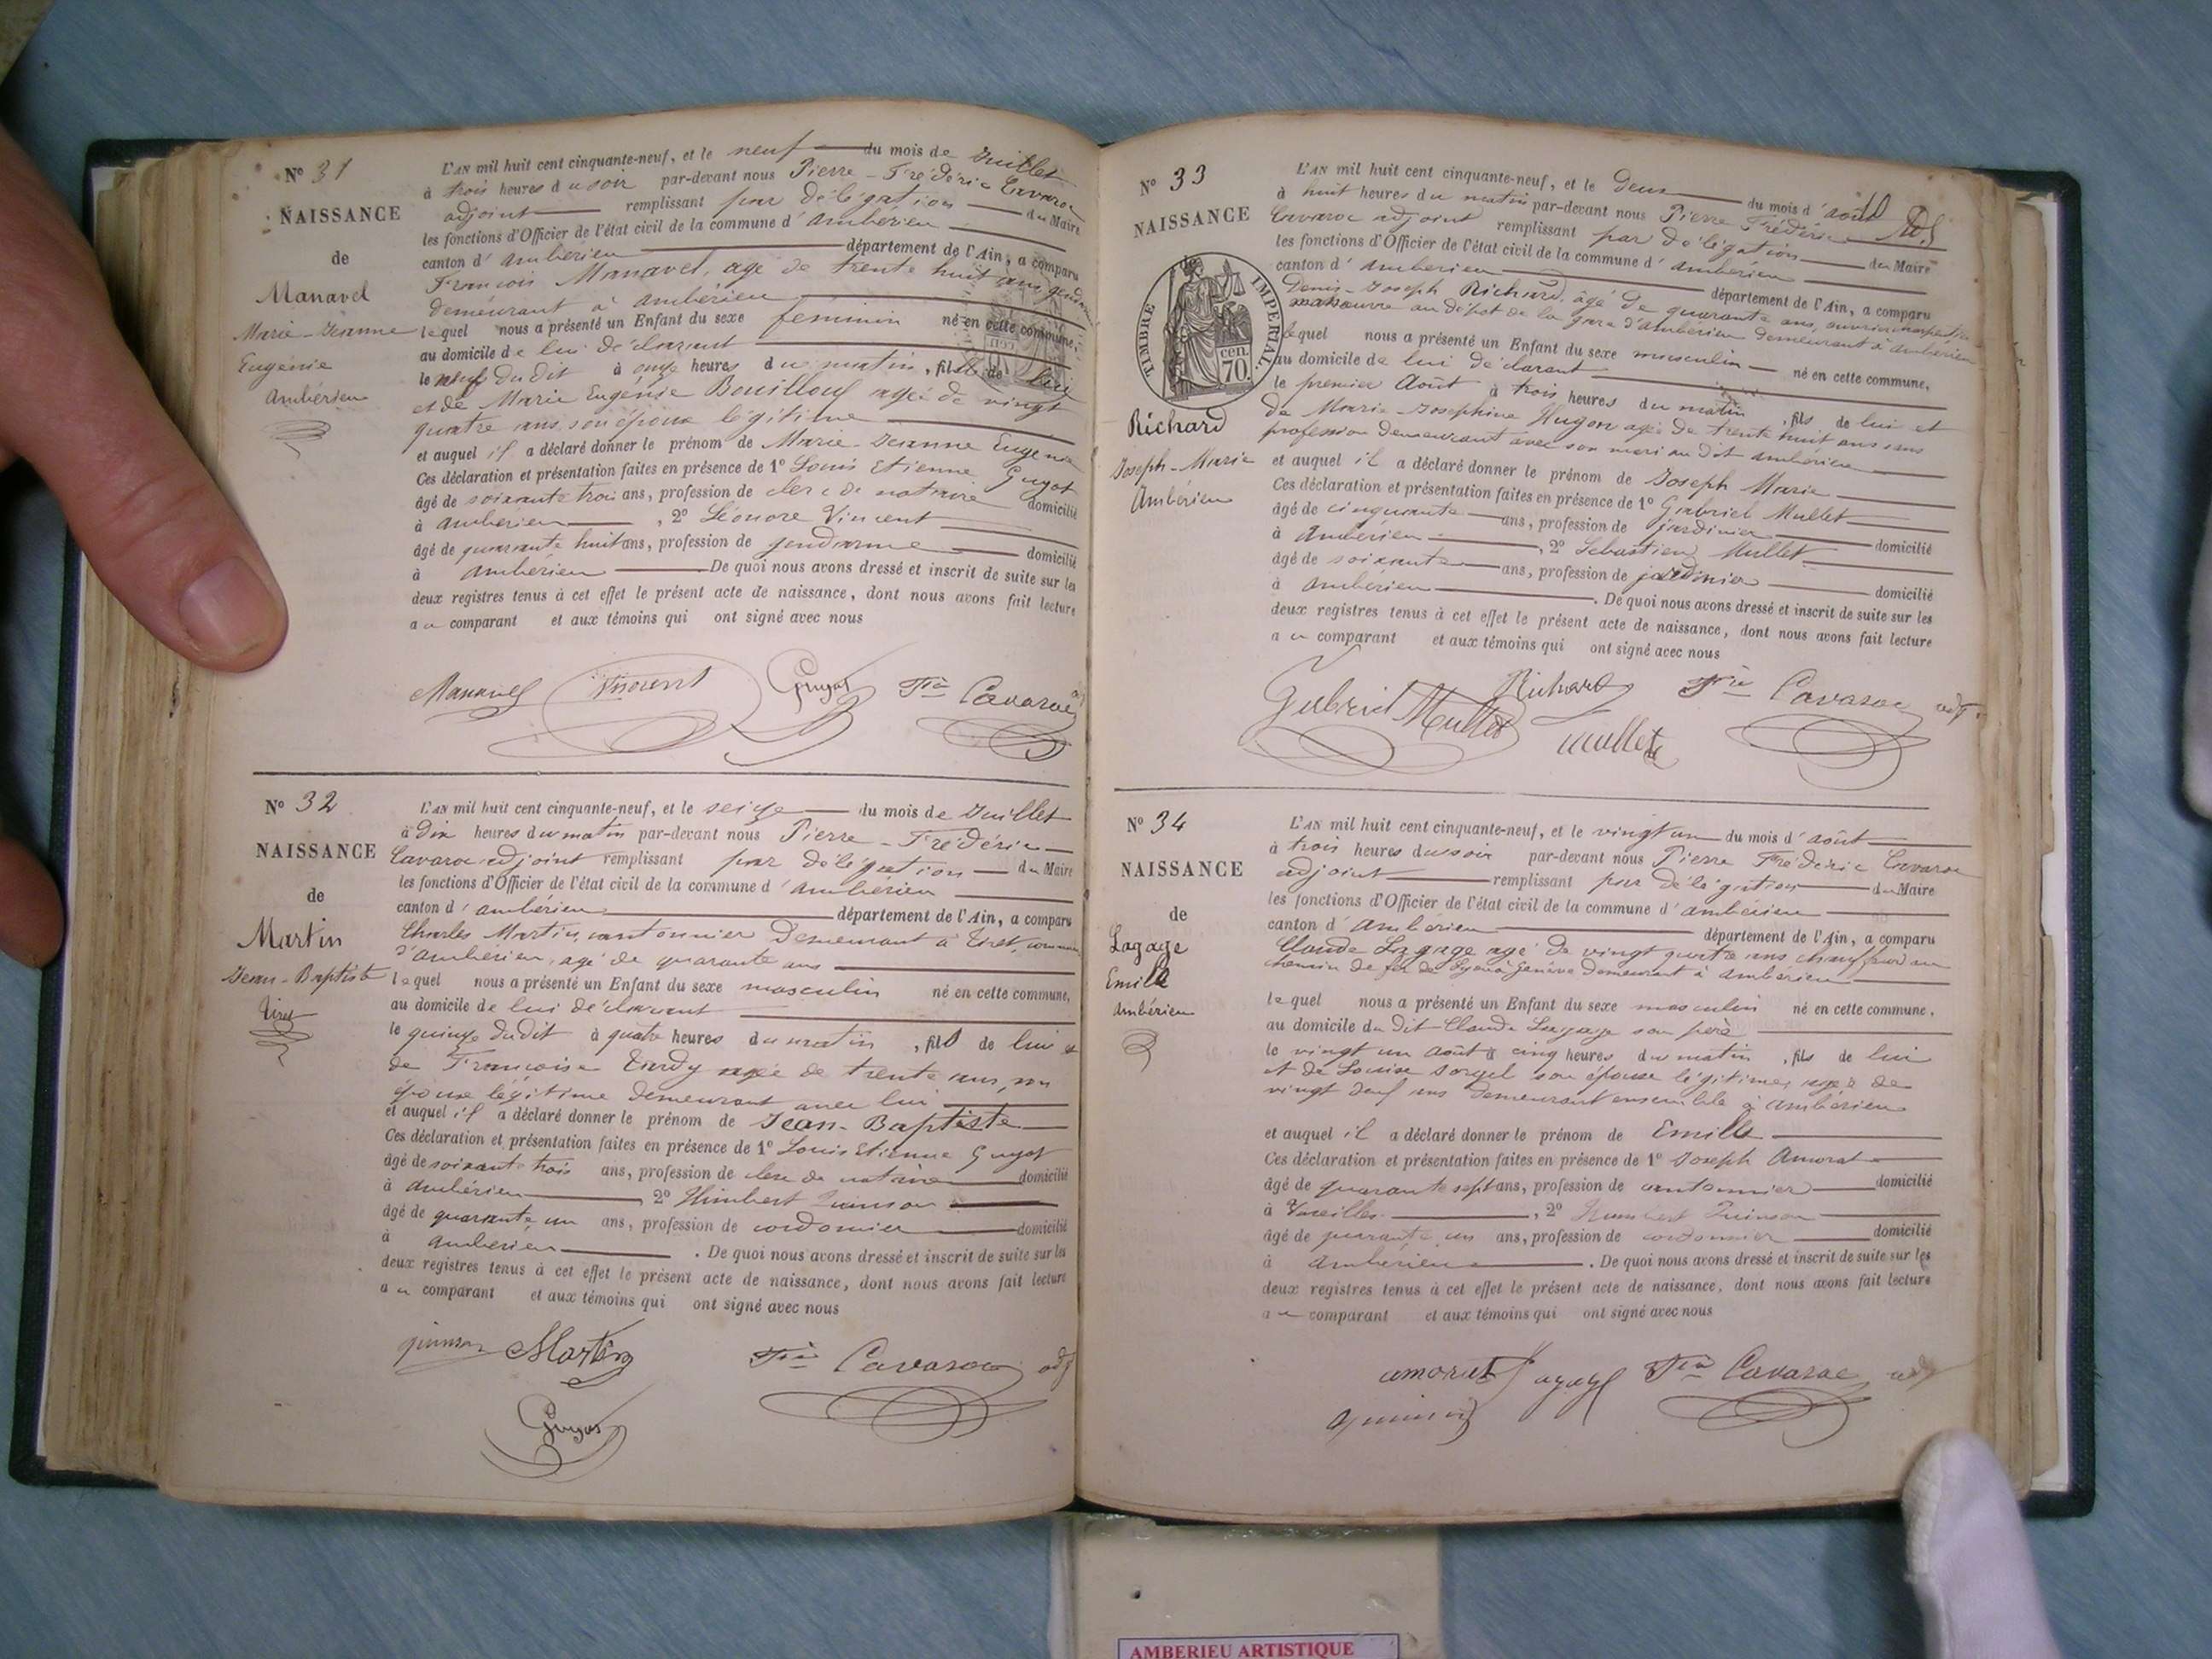 N° 31
NAISSANCE
de
Manavel
Marie-Jeanne
Eugénie
Ambérieu
L'AN mil huit cent cinquante-neuf, et le neuf du mois de Juillet
à trois heures du soir par-devant nous Pierre-Frédéric Cavaroc
adjoint remplissant par délégation du Maire
les fonctions d'Officier de l'état civil de la commune d'ambérieu
canton d'ambérieu département de l'Ain, a comparu
François Manavel, agé de trente huit ans gendarme
demeurant à ambérieu
lequel nous a présenté un Enfant du sexe féminin né en cette commune,
au domicile de lui déclarant
le neuf dudit à onze heures du matin, fille de lui
et de Marie Eugénie Bouilloud agée de vingt
quatre ans, son épouse légitime
et auquel il a déclaré donner le prénom de Marie-Jeanne Eugénie
Ces déclaration et présentation faites en présence de 1° Louis Etienne Guyot
âgé de soixante trois ans, profession de clerc de notaire domicilié
à ambérieu, 2° Léonore Vincent
âgé de quarante huit ans, profession de gendarme domicilié
à ambérieu De quoi nous avons dressé et inscrit de suite sur les
deux registres tenus à cet effet le présent acte de naissance, dont nous avons fait lecture
au comparant et aux témoins qui ont signé avec nous
Manavel Vincent Guyot Fric Cavaroc
N° 32
NAISSANCE
de
Martin
Jean-Baptiste
Tiret
L'AN mil huit cent cinquante-neuf, et le seize du mois de Juillet
à dix heures du matin par-devant nous Pierre-Frédéric
Cavaroc adjoint remplissant par délégation du Maire
les fonctions d'Officier de l'état civil de la commune d'ambérieu
canton d'ambérieu département de l'Ain, a comparu
Charles Martin, cantonnier demeurant à Tiret, commune
d'ambérieu, agé de quarante ans
lequel nous a présenté un Enfant du sexe masculin né en cette commune,
au domicile de lui déclarant
le quinze dudit à quatre heures du matin, fils de lui et
de Françoise Tardy agée de trente ans, son
épouse légitime demeurant avec lui
et auquel il a déclaré donner le prénom de Jean-Baptiste
Ces déclaration et présentation faites en présence de 1° Louis Etienne Guyot
âgé de soixante trois ans, profession de clerc de notaire domicilié
à ambérieu 2° Humbert Quinson
âgé de quarante un ans, profession de cordonnier domicilié
à ambérieu. De quoi nous avons dressé et inscrit de suite sur les
deux registres tenus à cet effet le présent acte de naissance, dont nous avons fait lecture
au comparant et aux témoins qui ont signé avec nous
quinson Martin Fric Cavaroc adj
Guyot
N° 33
NAISSANCE
TIMBRE IMPERIAL.
70. cen.
Richard
Joseph-Marie
Ambérieu
L'AN mil huit cent cinquante-neuf, et le deux du mois d'août
à huit heures du matin par-devant nous Pierre Frédéric
Cavaroc adjoint remplissant par délégation du Maire
les fonctions d'Officier de l'état civil de la commune d'ambérieu
canton d'ambérieu département de l'Ain, a comparu
Denis-Joseph Richard, âgé de quarante ans, ouvrier
manœuvre au dépôt de la gare d'ambérieu demeurant à ambérieu
lequel nous a présenté un Enfant du sexe masculin né en cette commune,
au domicile de lui déclarant
le premier Août à trois heures du matin, fils de lui et
de Marie-Josephine Hugon agée de trente huit ans sans
profession demeurant avec son mari au dit ambérieu
et auquel il a déclaré donner le prénom de Joseph Marie
Ces déclaration et présentation faites en présence de 1° Gabriel Mullet
âgé de cinquante ans, profession de jardinier
à ambérieu, 2° Sebastien Mullet domicilié
âgé de soixante ans, profession de jardinier
à ambérieu domicilié
. De quoi nous avons dressé et inscrit de suite sur les
deux registres tenus à cet effet le présent acte de naissance, dont nous avons fait lecture
au comparant et aux témoins qui ont signé avec nous
Gabriel Mullet Richard Fric Cavaroc adj.
mullet
N° 34
NAISSANCE
de
Lagage
Emile
Ambérieu
L'AN mil huit cent cinquante-neuf, et le vingt un du mois d'août
à trois heures du soir par-devant nous Pierre Frédéric Cavaroc
adjoint remplissant par délégation du Maire
les fonctions d'Officier de l'état civil de la commune d'ambérieu
canton d'ambérieu département de l'Ain, a comparu
Claude Lagage agé de vingt quatre ans chauffeur au
chemin de fer de Lyon à Genève demeurant à ambérieu
lequel nous a présenté un Enfant du sexe masculin né en cette commune,
au domicile du dit Claude Lagage son père
le vingt un août à cinq heures du matin, fils de lui
et de Louise Sorgel son épouse légitime, agée de
vingt neuf ans demeurant ensemble à ambérieu
et auquel il a déclaré donner le prénom de Emile
Ces déclaration et présentation faites en présence de 1° Joseph Amorat
âgé de quarante sept ans, profession de cantonnier domicilié
à Vareilles, 2° Humbert Quinson
âgé de quarante un ans, profession de cordonnier domicilié
à ambérieu. De quoi nous avons dressé et inscrit de suite sur les
deux registres tenus à cet effet le présent acte de naissance, dont nous avons fait lecture
au comparant et aux témoins qui ont signé avec nous
amorat Lagage Fric Cavaroc adj
quinson
AMBERIEU ARTISTIQUE